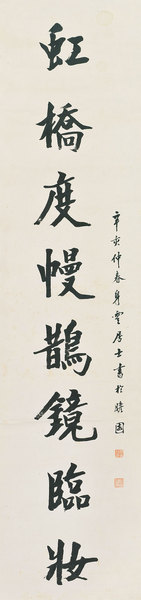 虹橋度幔鵲鏡臨妝
辛亥仲春身雲居士書於瞻園